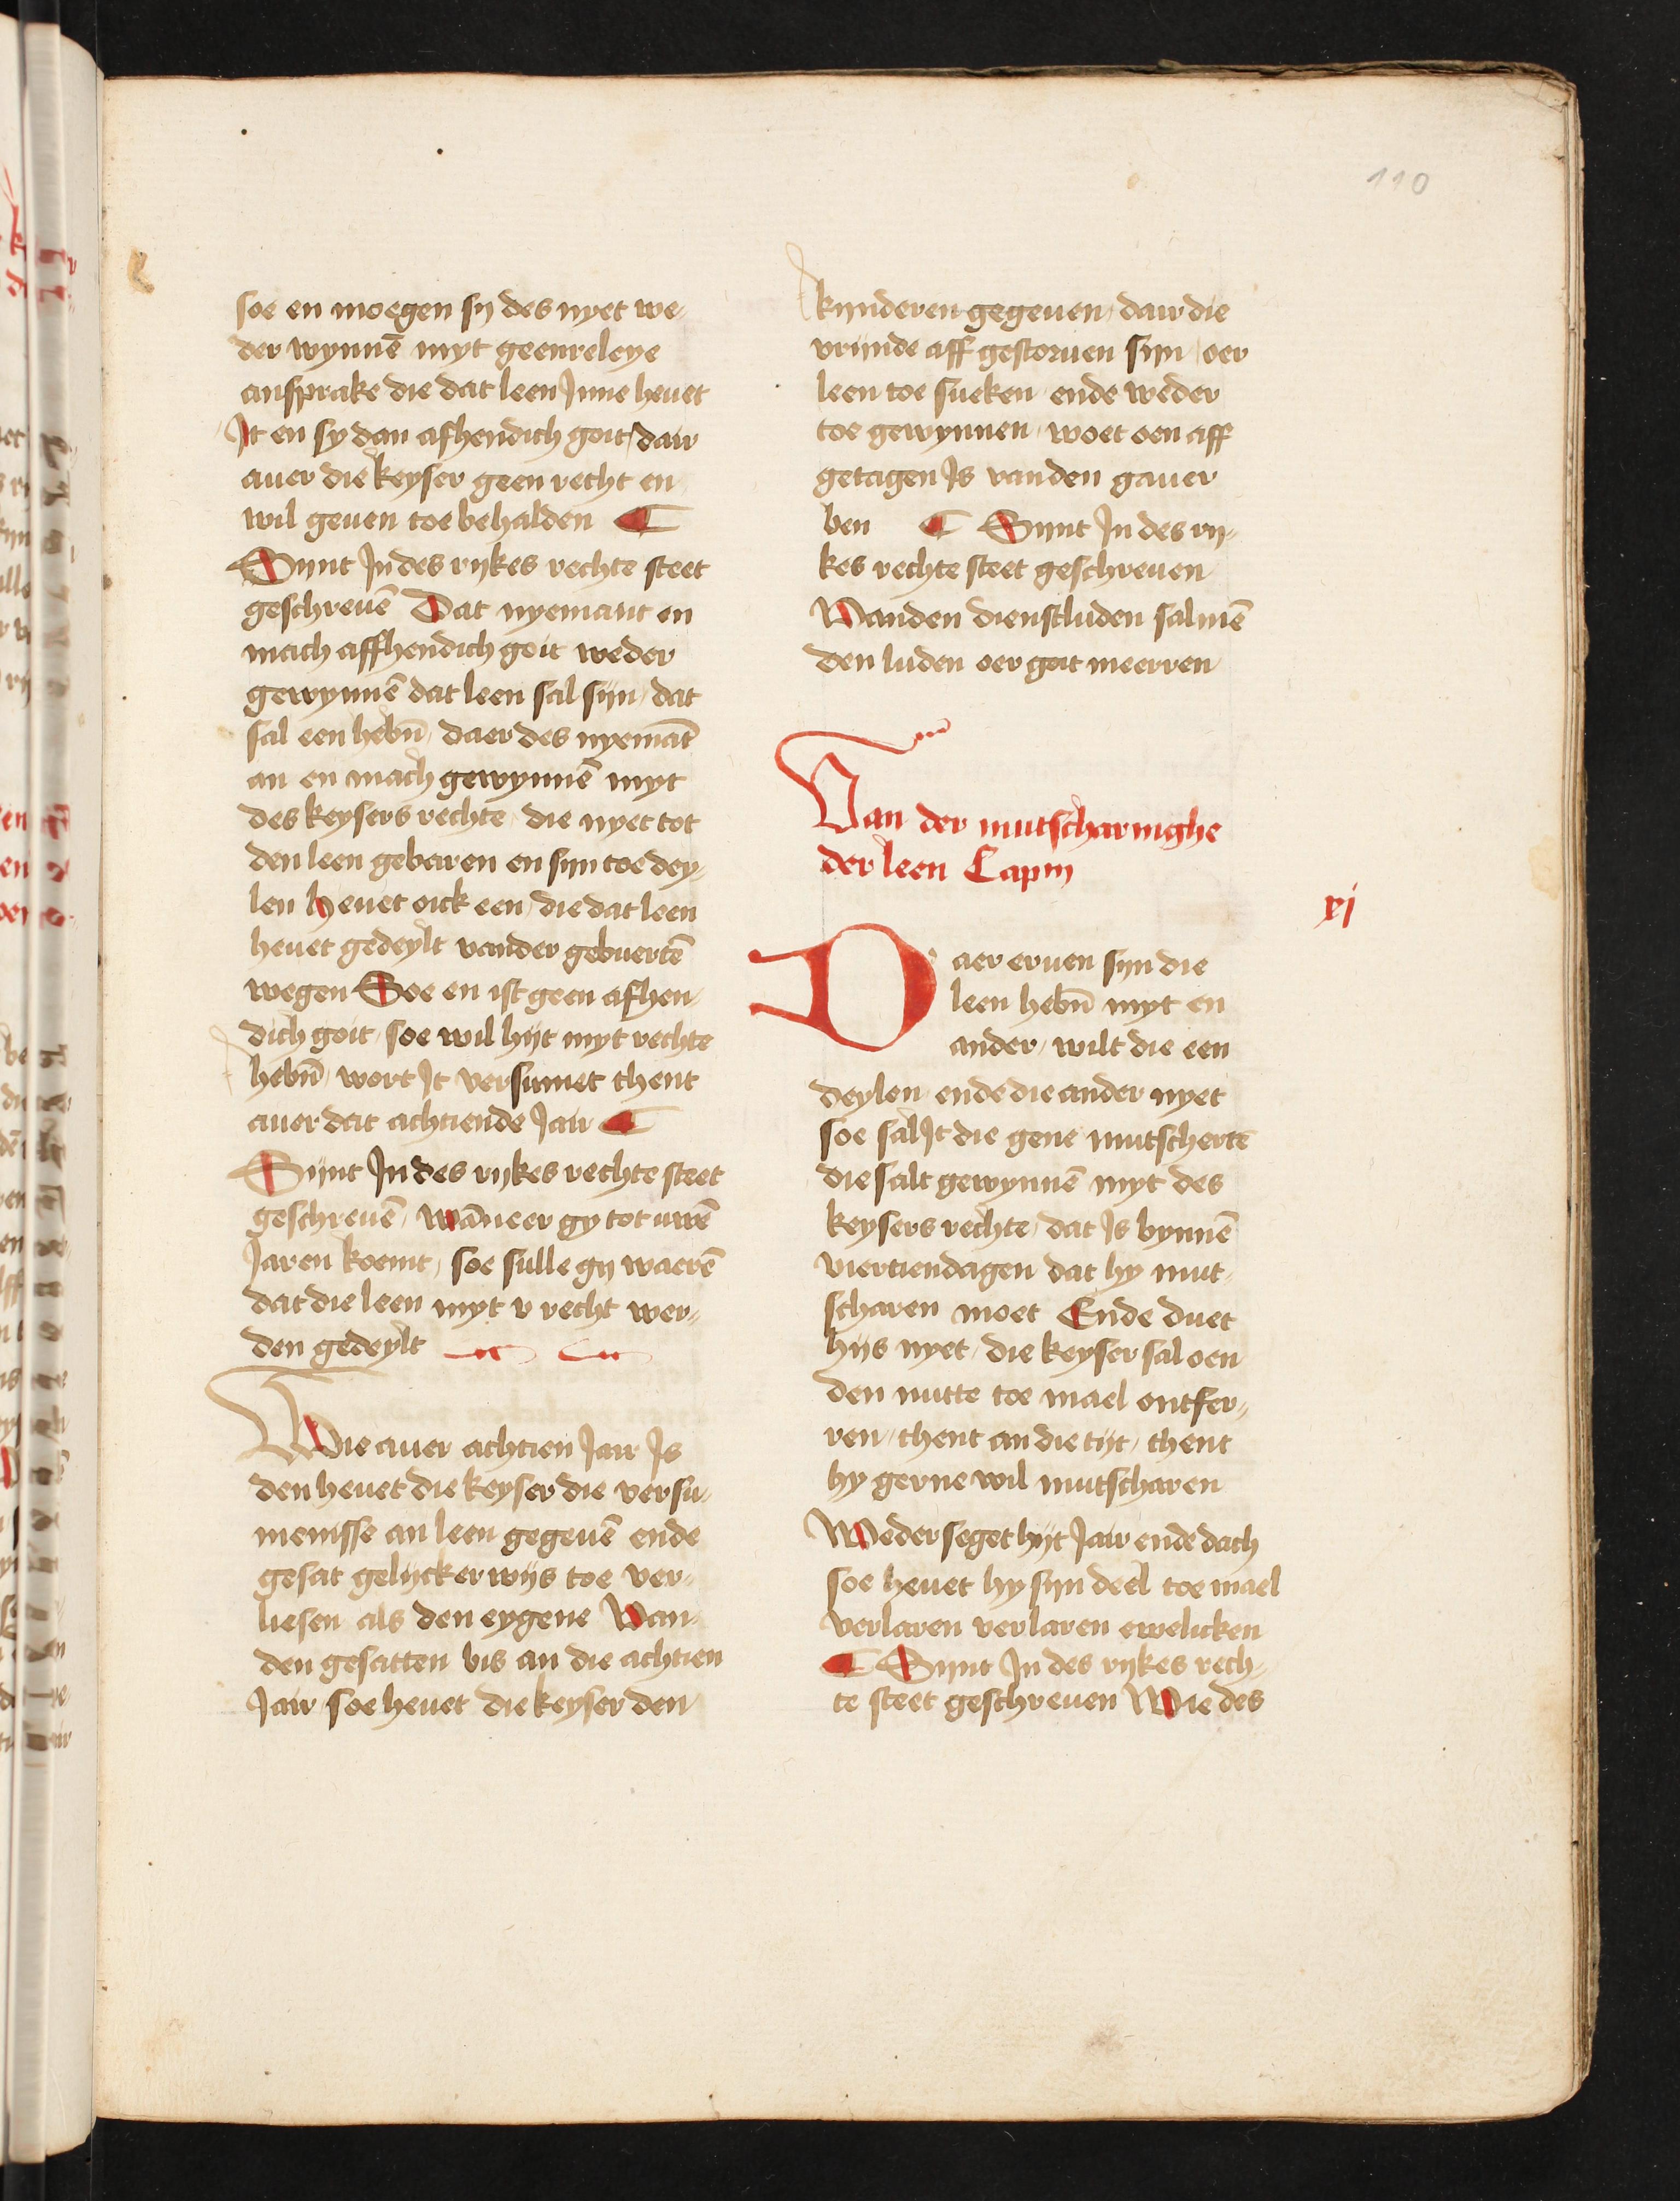 110
soe en moegen sij des nyet we-
der wynnē myt geenreleye
ansprake die dat leen Jnne heuet
Jt en sy dan afhendich goit dair
auer die keyser geen recht en
wil geuen toe behalden ¶
Sijnt Jn des rijkes rechte steet
geschreuē Dat nyemant en
mach affhendich goit weder
gewynnē dat leen sal sijn dat
sal een hebn̄ daer des nyemāt
an en mach gewynnē myt
des keysers rechte die nyet tot
den leen gebaren en sijn toe dey-
len heuet oick een die dat leen
heuet gedeylt vander gebuertē
wegen Soe en ist geen afhen-
dich goit soe wil hijt myt rechte
hebn̄ wort Jt versumet thent
auer dat achtiende Jair ¶
Sijnt Jn des rijkes rechte steet
geschreuē wāneer gy tot uwē
Jaren koemt soe sulle gij waerē
dat die leen myt v recht wer-
den gedeylt
Wie auer achtien Jair Js
den heuet die keyser die versu-
menisse an leen gegeuē ende
gesat gelijckerwijs toe ver-
liesen als den eygene Van
den gesatten bis an die achtien
Jair soe heuet die keyser den
kijnderen gegeuen dair die
vrijnde aff gestoruen sijn oer
leen toe sueken ende weder
toe gewynnen woet oen aff
getagen Js vanden gauer
ben ¶ Sijnt Jn des rij-
kes rechte steet geschreuen
Vanden dienstluden salmē
den luden oer goit meerren
Van der mutscharinghe
der leen Capm
xj
Daer eruen sijn die
leen hebn̄ myt en
ander wilt die een
deylen ende die ander nyet
soe sal Jt die gene mutschertē
die salt gewynnē myt des
keysers rechte dat Js bynnē
viertiendagen dat hy mut-
scharen moet Ende duet
hijs nyet die keyser sal oen
den nutte toe mael ontfer-
ren thent an die tijt thent
hy gerne wil mutscharen
Wederseget hijt Jair ende dach
soe heuet hy sijn deel toe mael
verlaren verlaren ewelicken
¶ Sijnt Jn des rijkes rech-
te steet geschreuen Wie des